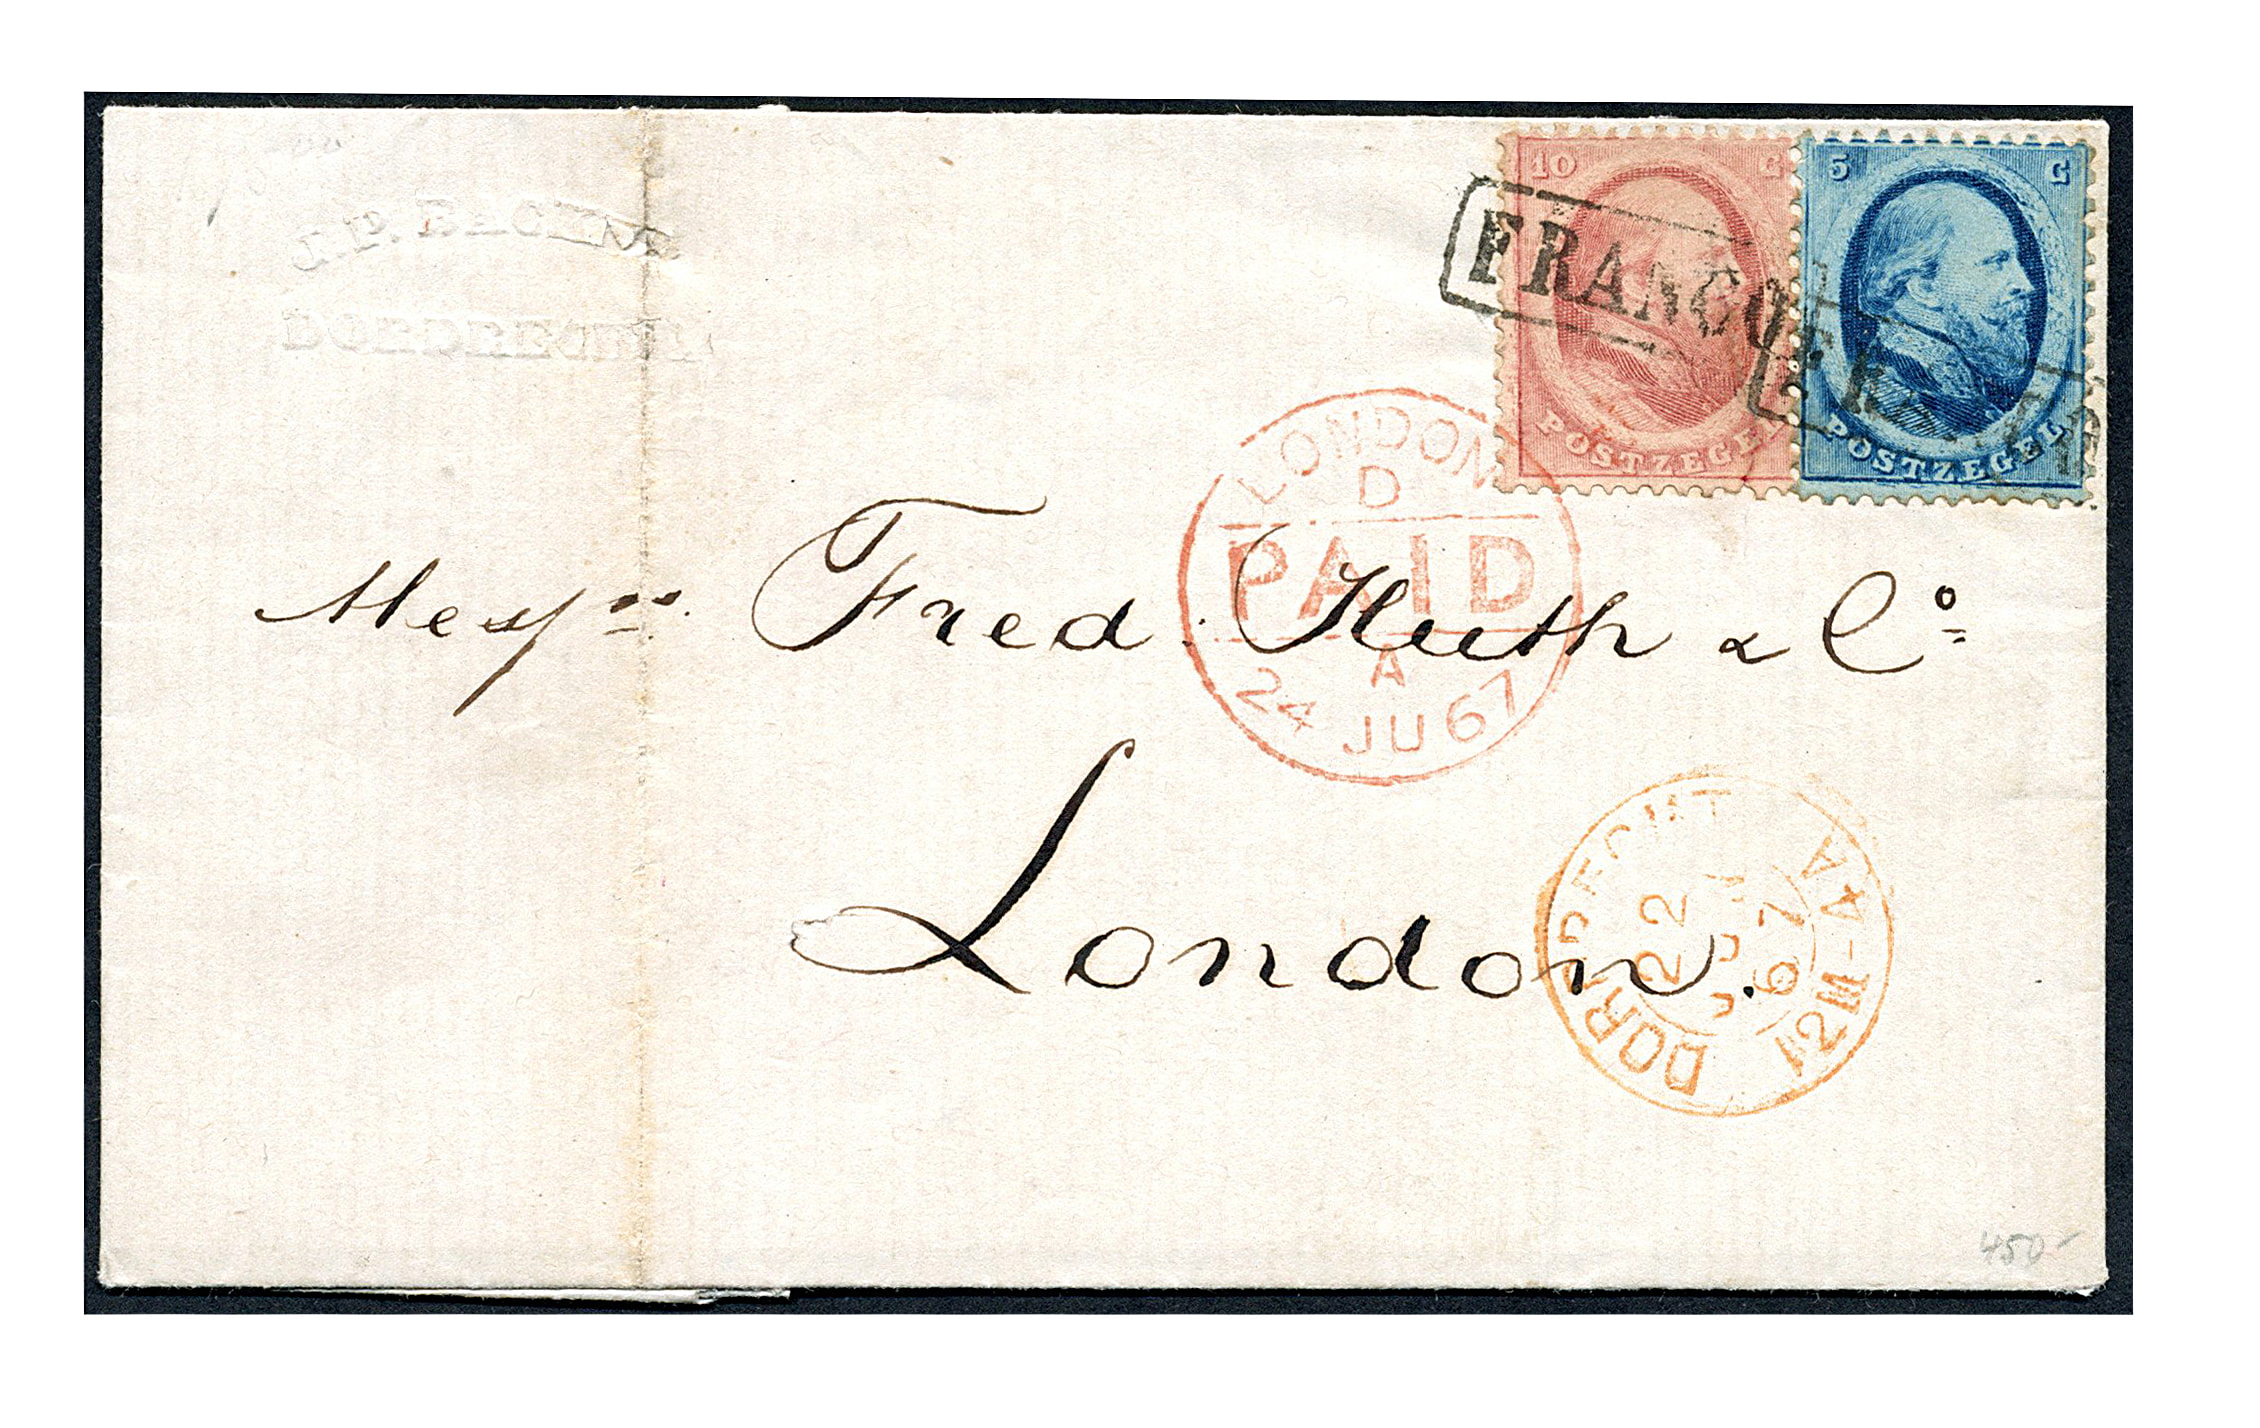 10 C
5 C
FRANCO
FRANCO
POSTZEGEL
POSTZEGEL
LONDON
D
PAID
A
24 JU 67
Messrs. Fred. Huth & Co
London.
DORDRECHT
22
JUN
67
12M-4A
450-